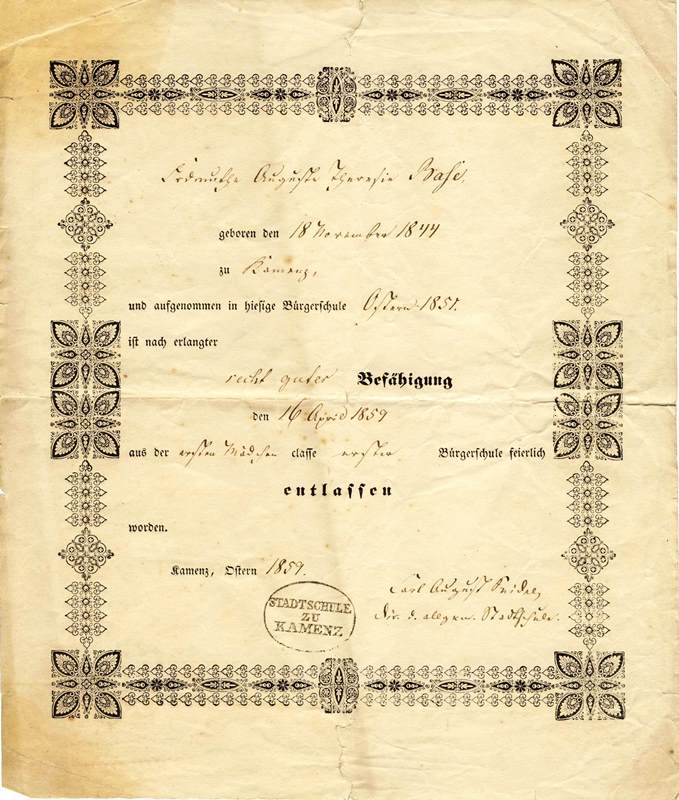 Erdmuthe Auguste Theresie Base,
geboren den 18 November 1844
zu Kamenz,
und aufgenommen in hiesige Bürgerschule Ostern 1851.
ist nach erlangter
recht guter Befähigung
den 16 April 1859
aus der ersten Mädchen classe erster Bürgerschule feierlich
entlassen
worden.
Kamenz, Ostern 1859.
Carl August
Dir. d. allgem. Stadtschule.
STADTSCHULE
ZU
KAMENZ